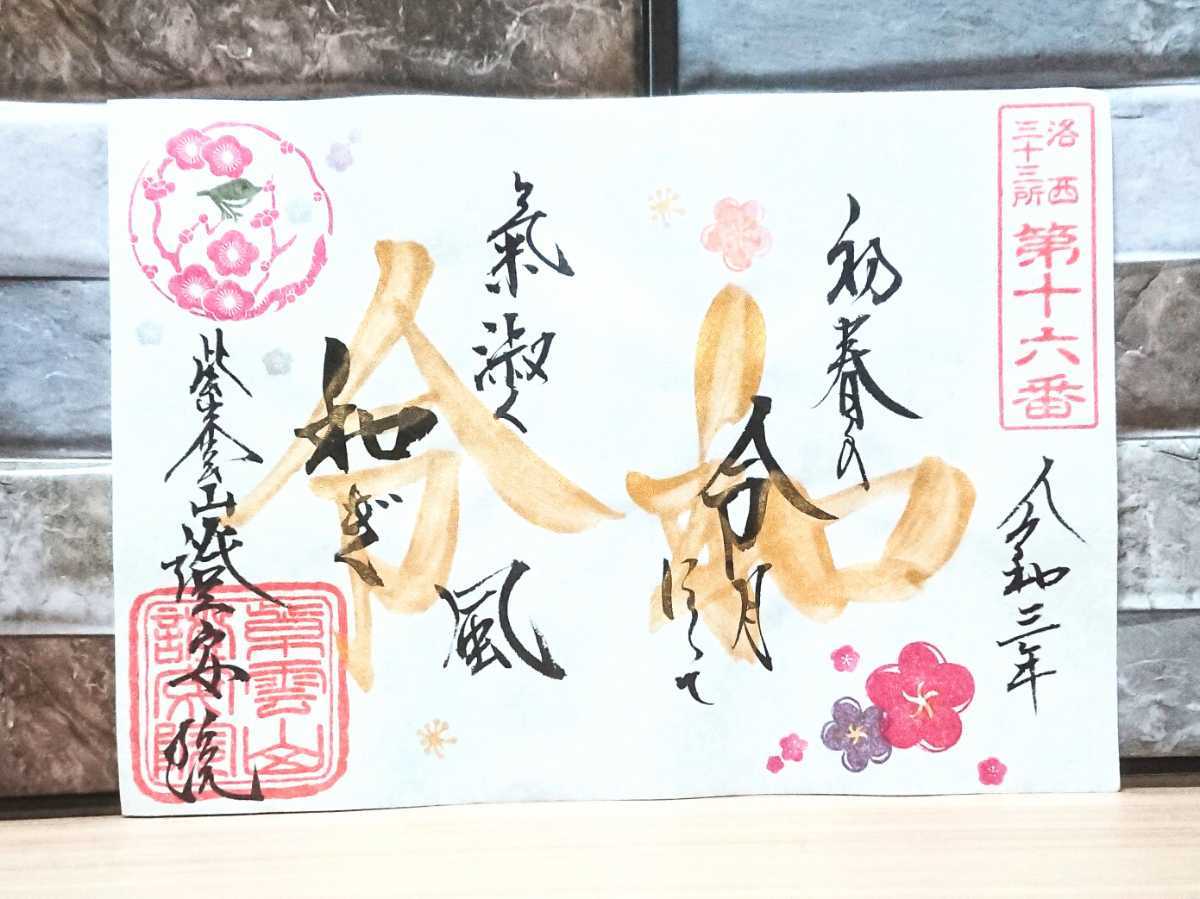 洛西
三十三所
第十六番
令和三年
初春の
令月にして
氣淑く
風
和ぎ
令和
紫雲山
院
紫雲山